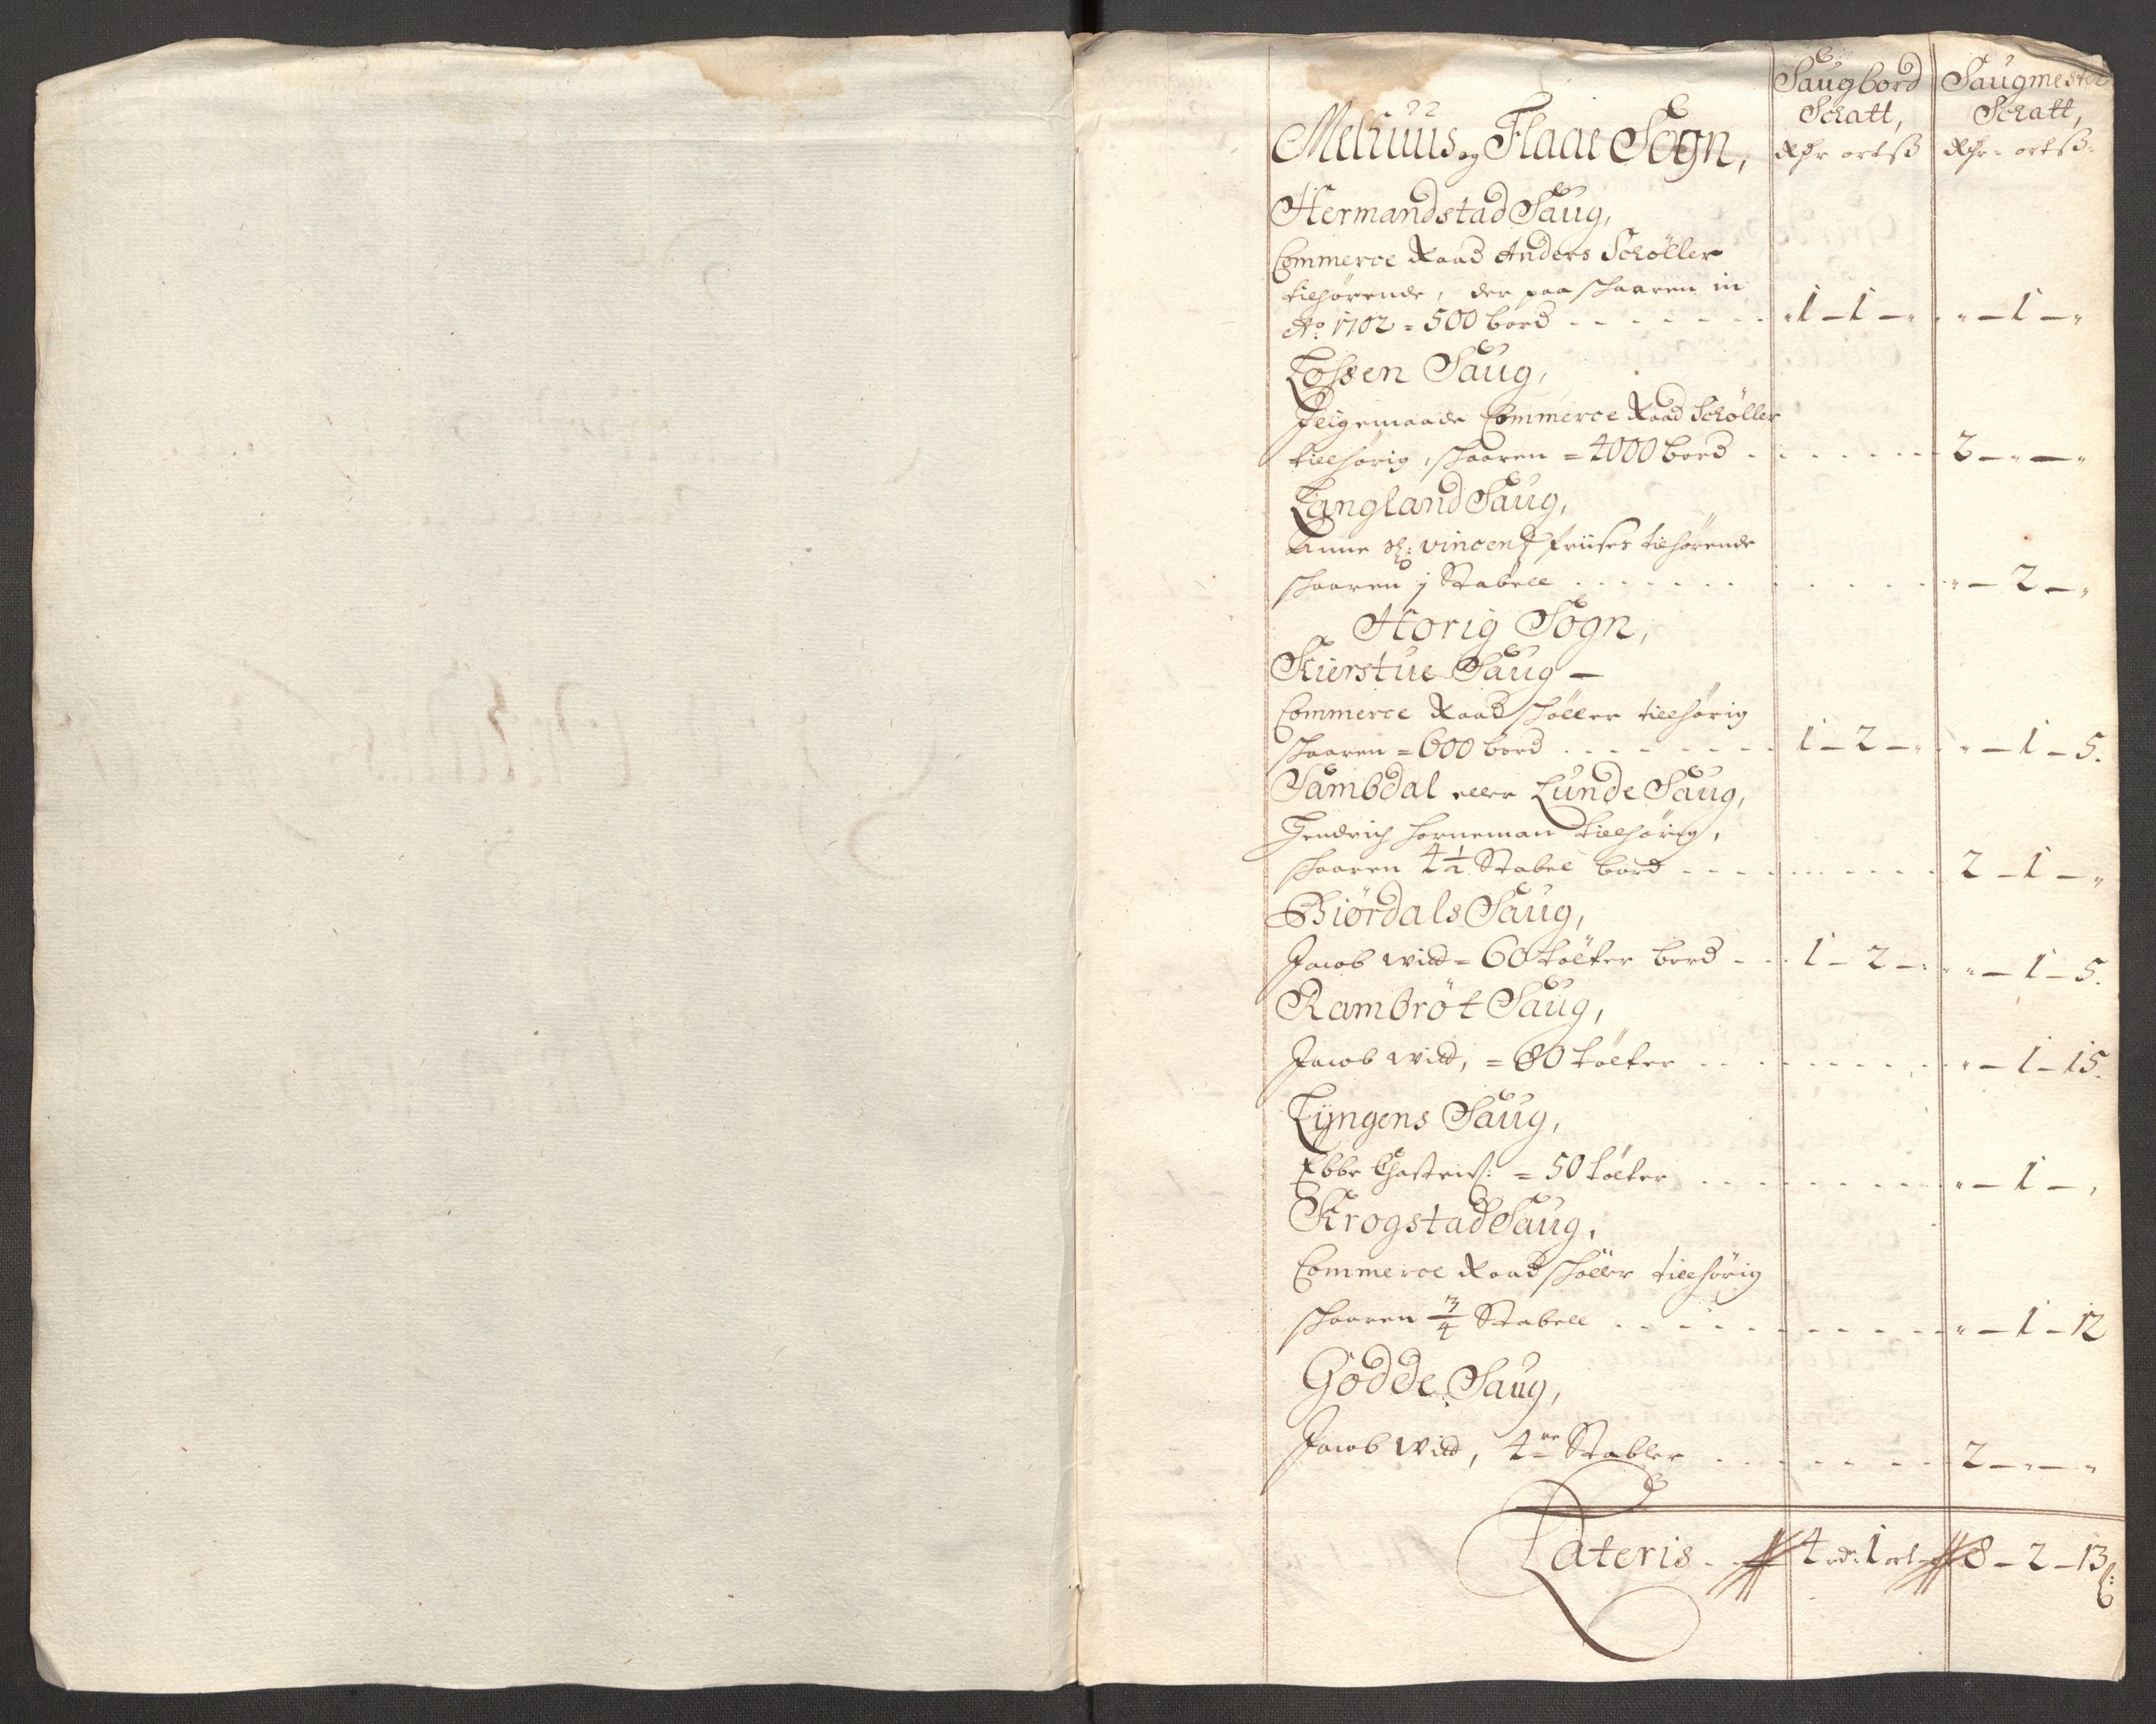 Saugbord Schatt, Rdr ort ß
Saugmester Schatt, Rdr - ort ß
Melhuus og Flaae Sogn,
Hermandstad Saug,
Commerce Raad Anders Schøller
tilhørende, der paa skaaren in
Ao. 1702 = 500 bord . . . . . . . 1 - 1 - " " - 1 - "
Lossen Saug,
Ligemaade Commerce Raad Schøller
tillhørig, skaaren = 4000 bord . . . . . . 2 - " - "
Langland Saug,
Anne Sl: Vincentz Friises tilhørende
skaaren j Stabell . . . . . . " - 2 - "
Horig Sogn,
Kierstue Saug -
Commerce Raad Schøller tillhørig
skaaren = 600 bord . . . . . . 1 - 2 - " " - 1 - 5.
Sambdal eller Lunde Saug,
Hendrich Horneman tillhørig,
skaaren 4 1/2 Stabel bord . . . . . . 2 - 1 - "
Biørdals Saug,
Jacob Witt = 60 tølter bord . . 1 - 2 - " " - 1 - 5.
Rambrøt Saug,
Jacob Witt, = 80 tølter . . . . . . " - 1 - 15.
Lyngens Saug,
Ebbe = 50 tølter . . . . . . " - 1 - "
Krogstad Saug,
Commerce Raad Schøller tillhørig
skaaren 3/4 Stabell . . . . . . " - 1 - 12
Godde Saug,
Jacob Witt, 4re Stabler . . . . . . 2 - " - "
Lateris . . 4 rdr 1 ort 8 - 2 - 13